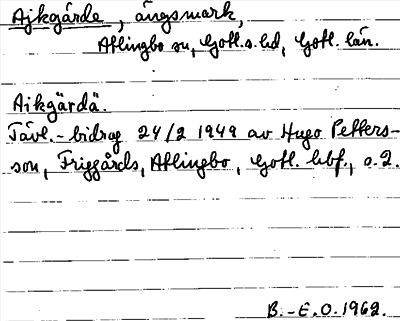 Ajkgärde, ängsmark,
Atlingbo sn, Gotl.s.hd, Gotl. län.
Aikgärdä.
Tävl.-bidrag 24/2 1949 av Hugo Petters-
son, Friggårds, Atlingbo, Gotl. hbf., s. 2.
B.-E.O.1962.